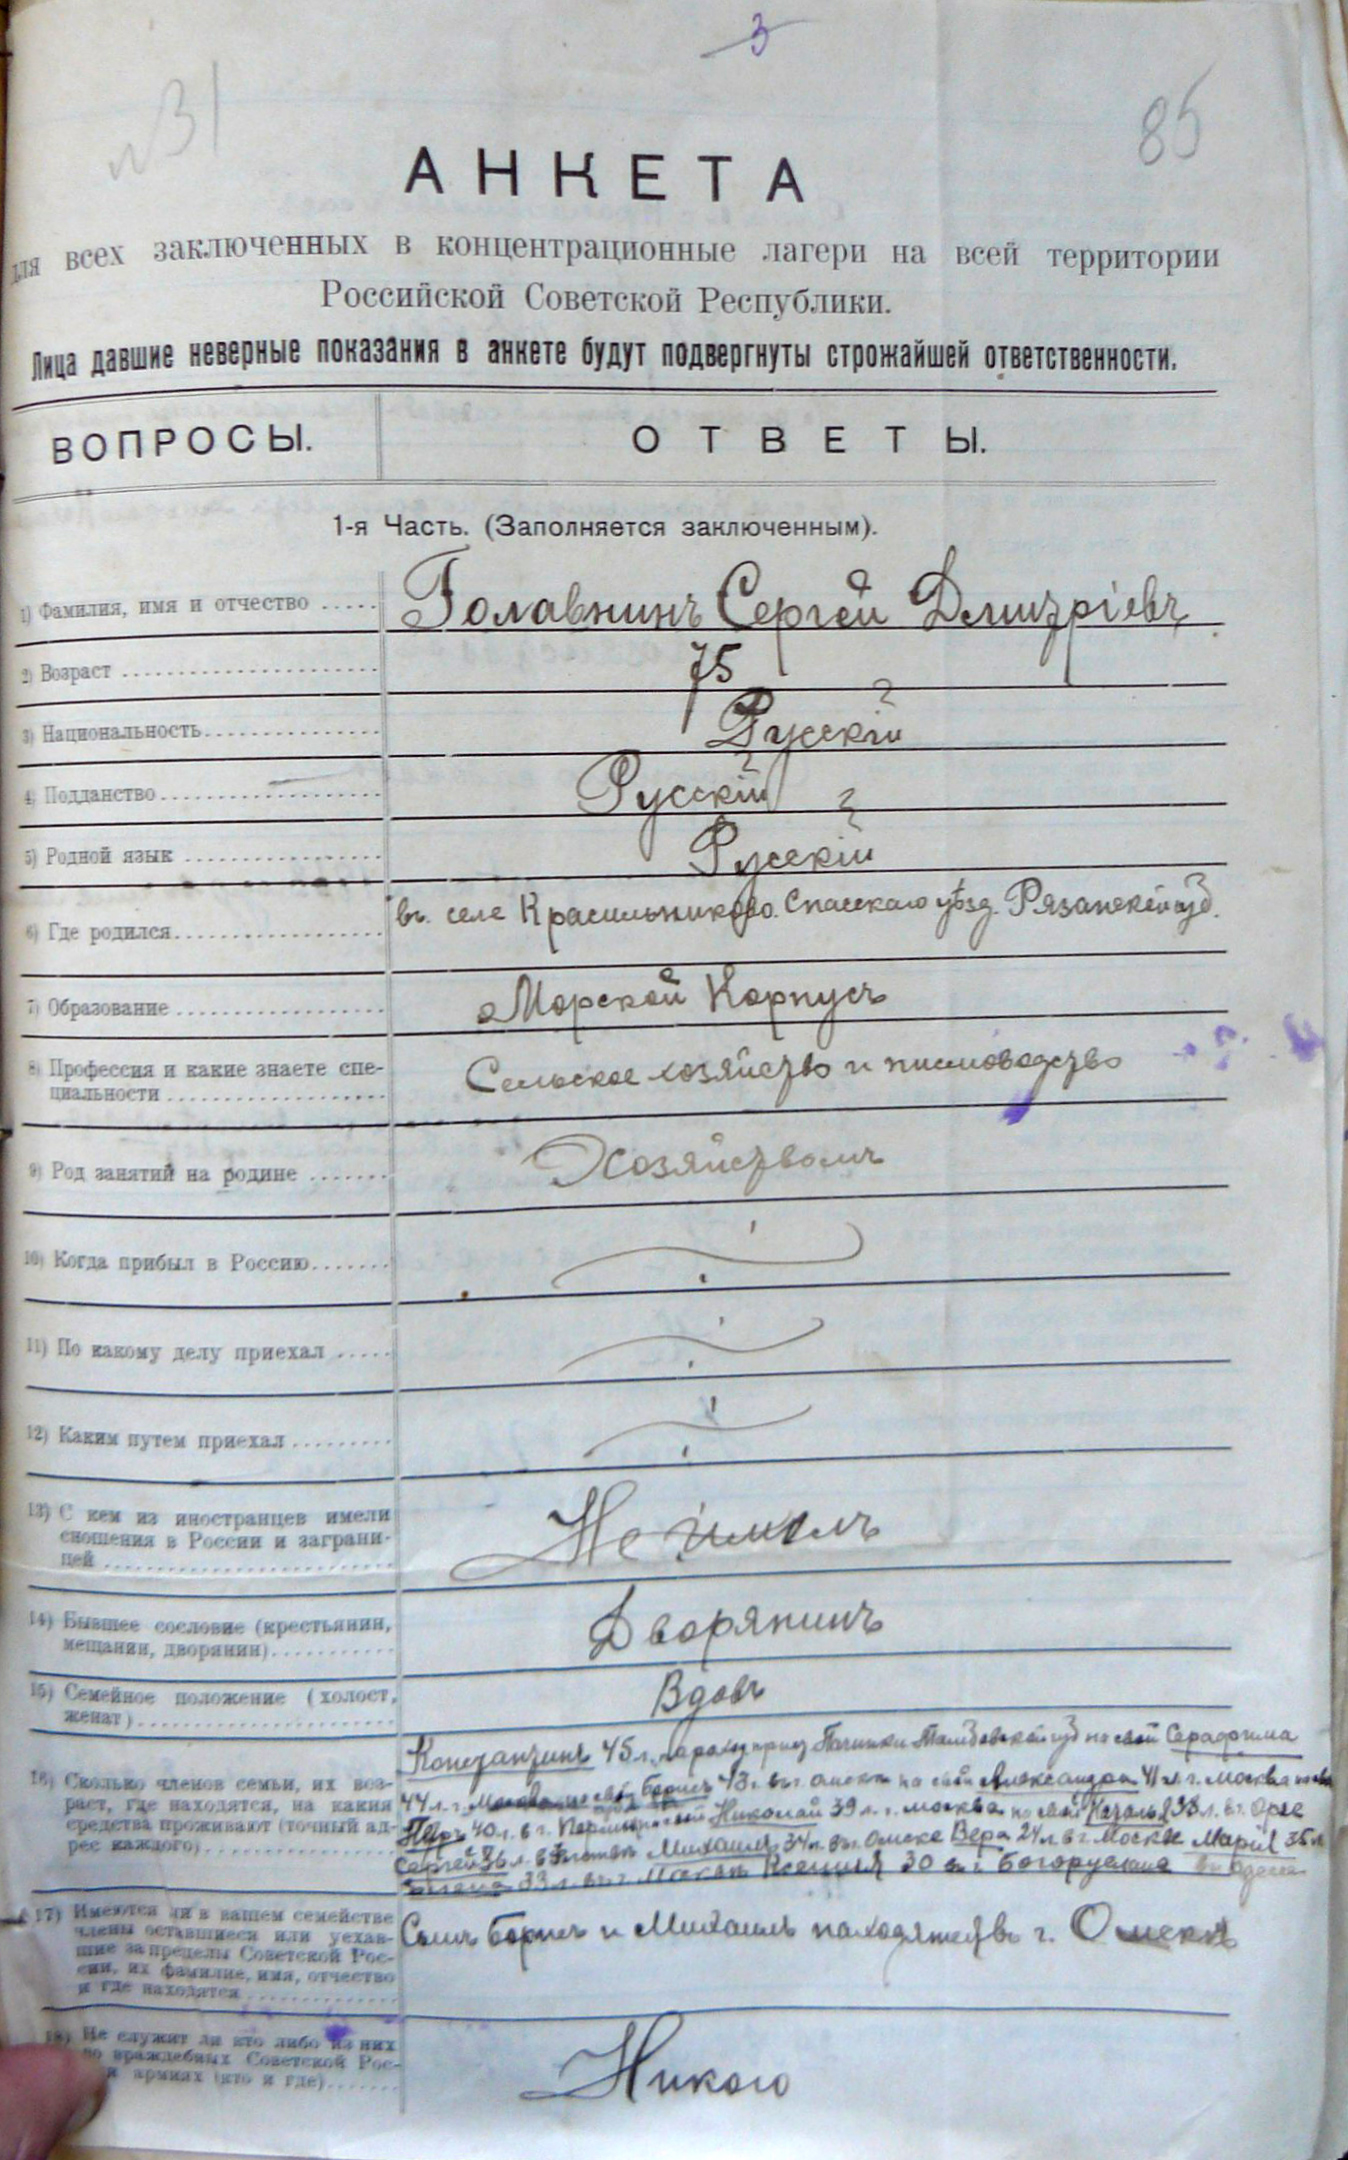 3
№31
85
АНКЕТА
для всех заключенных в концентрационные лагери на всей территории
Российской Советской Республики.
Лица давшие неверные показания в анкете будут подвергнуты строжайшей ответственности.
ВОПРОСЫ. ОТВЕТЫ.
1-я Часть. (Заполняется заключенным).
1) Фамилия, имя и отчество ..... Голавнинъ Сергей Дмитріевъ
2) Возраст ..... 75
3) Национальность ..... Русскій
4) Подданство ..... Русскій
5) Родной язык ..... Русскій
6) Где родился ..... въ селе Красильниково. Спасскаго уѣзд. Рязанской губ.
7) Образование ..... Морской Корпусъ
8) Профессия и какие знаете спе-
циальности ..... Сельское хозяйство и письмоводство
9) Род занятий на родине ..... Хозяйствомъ
10) Когда прибыл в Россию .....
11) По какому делу приехал .....
12) Каким путем приехал .....
13) С кем из иностранцев имели
сношения в России и заграни-
цей ..... Не имелъ
14) Бывшее сословие (крестьянин,
мещанин, дворянин) ..... Дворянинъ
15) Семейное положение (холост,
женат) ..... Вдовъ
16) Сколько членов семьи, их воз-
раст, где находятся, на какия
средства проживают (точный ад-
рес каждого) .....
Константинъ 45 л. Починки Тамбовской губ на свой Серафима
44 л. г. Борисъ 43 г. въ г. Омске на свой Александра 41 л г. Москва
Петръ 40 л. в г. Николай 39 л. г. Москва на свой Наталья 38 л. въ г. Орле
Сергей 36 л. Михаилъ 34 л. въ г. Омске Вера 24 л в г Москве Марія 35 л
33 л. въ г. Москве Ксения 30 въ Одессе
17) Имеются ли в вашем семействе
члены оставшиеся или уехав-
шие за пределы Советской Рос-
сии, их фамилие, имя, отчество
и где находятся ..... Сынъ Борисъ и Михаилъ находятся въ г. Омске
18) Не служит ли кто либо из них
во враждебных Советской Рос-
и армиях (кто и где) ..... Никого